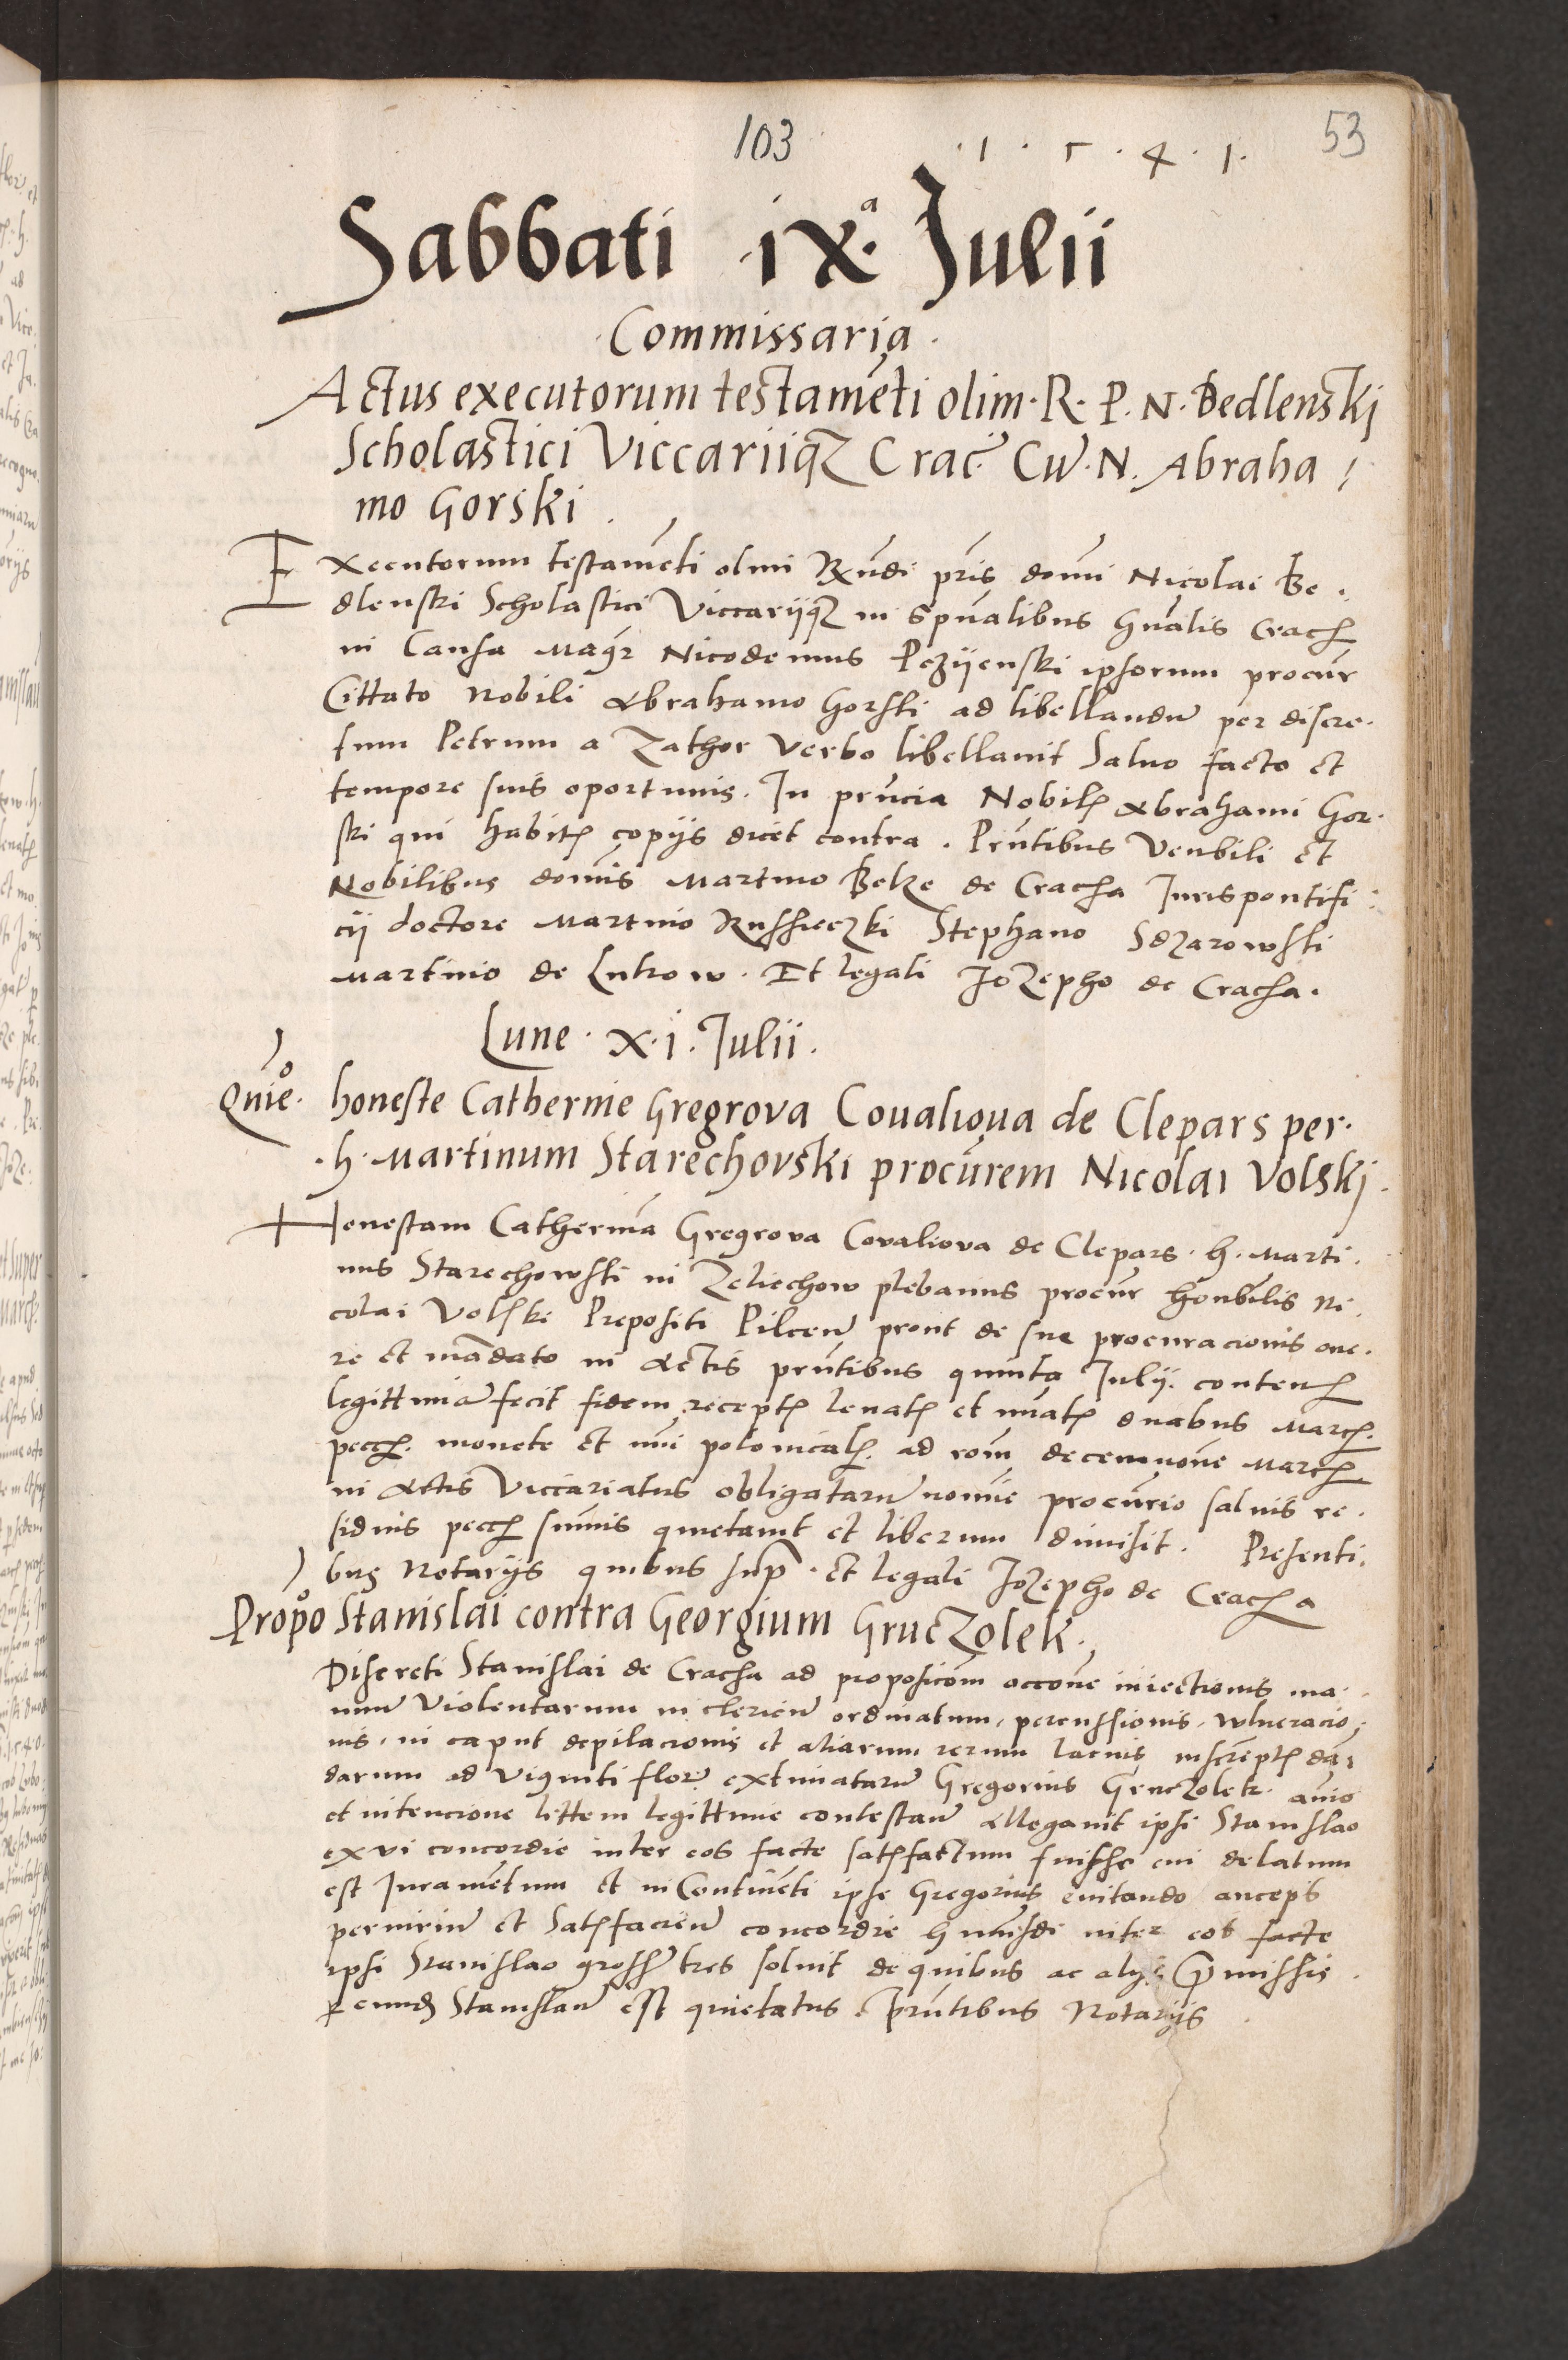 103
53
· 1 · 5 · 4 · 1 ·
Sabbati · ix ᵃ· Julii
· Commissaria ·
Actus executorum testamẽti olim · R · P. N. Bedlenskj
Scholastici Viccariiqȝ Crac̃ Cũ · N. Abraha
mo Gorski .
Executorum testamẽti olim Rx̃ndi pr̃is dom̃i Nicolai Be .
dlenski Scholastici Viccarijqȝ in Spũalibus Gñalis Cracꝭ
in Causa Magr̃ Nicodemus ipsorum procũr
Cittato Nobili Abrahamo Gorski ad libellandũ per discre .
tum Petrum a Zathor Verbo libellauit Saluo facto et
tempore suis oportunis . In pr̃ncia Nobilꝭ Abrahami Gor .
ski qui habitꝭ copijs dicet contra . Pr̃ntibus Venbili et
Nobilibus dom̃is Martino Belze de Cracꝭa Jurispontifi :
cij doctore Martino Stephano
Martinio de Lukow . Et legali JoZepho de Cracꝭa .
Lune · x · i · Julii .
Quiẽᵒ · honeste Catherine Gregrova Coualioua de Clepars per ·
· h · Martinum Starechovski procũrem Nicolai Volskj .
Honestam Catherinã Gregrova Covaliova de Clepars · h . Marti .
nus Starechowski in Zeliechow plebanus procũr Honb̃ilis Ni .
colai Volski Prepositi Pilcen̄ prout de sue procuracionis one .
re et mãdato in Actis pr̃ntibus quinta Julij . contenꝭ
legittimã fecit fidem receptꝭ leuatꝭ et nũatꝭ duabus Marcꝭ .
peccꝭ . monete et nũi polonicalꝭ . ad rõm decemnoue Marcꝭ
in Actis Viccariatus obligatarũ noĩe procũrio saluis re .
siduis peccꝭ sum̃is quietauit et liberum dimisit . Presenti .
bus Notarijs quibus sup̃ · et legali JoZepho de Cracꝭa
Propoᵒ Stanislai contra Georgium GrucZolek .
Discreti Stanislai de Cracꝭa ad proposicõm occc̃one iniectionis ma .
nuũ Violentarum in clericũ ordinatum , percussionis , wlneracio
nis , in caput depilacionis et aliarum rerum lacius inscreptꝭ dã
darum ad viginti florẽ extimatarũ Gregorius GrucZolek · aĩo
et intencione littem legittime contestañ Allegauit ipsi Stanislao
ex vi concordie inter eos facte satꝭfactum fuisse cui delatum
est Juramẽtum et inContinẽti ipse Gregorius euitando anceps
periuriũ et Satꝭfacieñ concordie hũiusdi inter eos facte
ipsi Stanislao grossꝭ tres soluit de quibus ac alijs premissis .
per eundꝭ Stanislaũ est quietatus . Pr̃ntibus Notarijs .